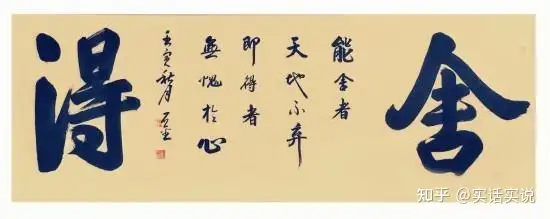 舍
能舍者
天地不弃
即得者
無愧於心
壬寅秋月
得
知乎 @实话实说